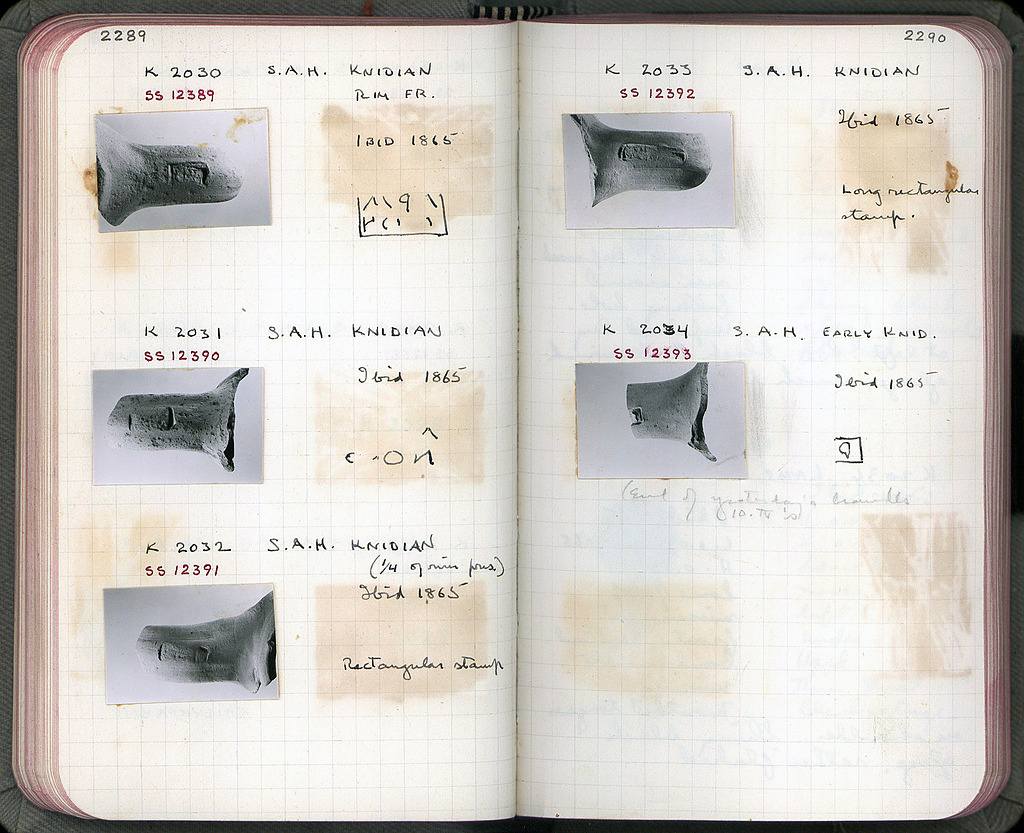 2289
K 2030 S.A.H. KNIDIAN
SS 12389 RIM FR.
IBID 1865
K 2031 S.A.H. KNIDIAN
SS 12390
Ibid 1865
K 2032 S.A.H. KNIDIAN
SS 12391 (1/4 of rim pres.)
Ibid 1865
Rectangular stamp
2290
K 2033 S.A.H. KNIDIAN
SS 12392
Ibid 1865
Long rectangular
stamp.
K 2034 S.A.H. EARLY KNID.
SS 12393
Ibid 1865
(End of yesterday's